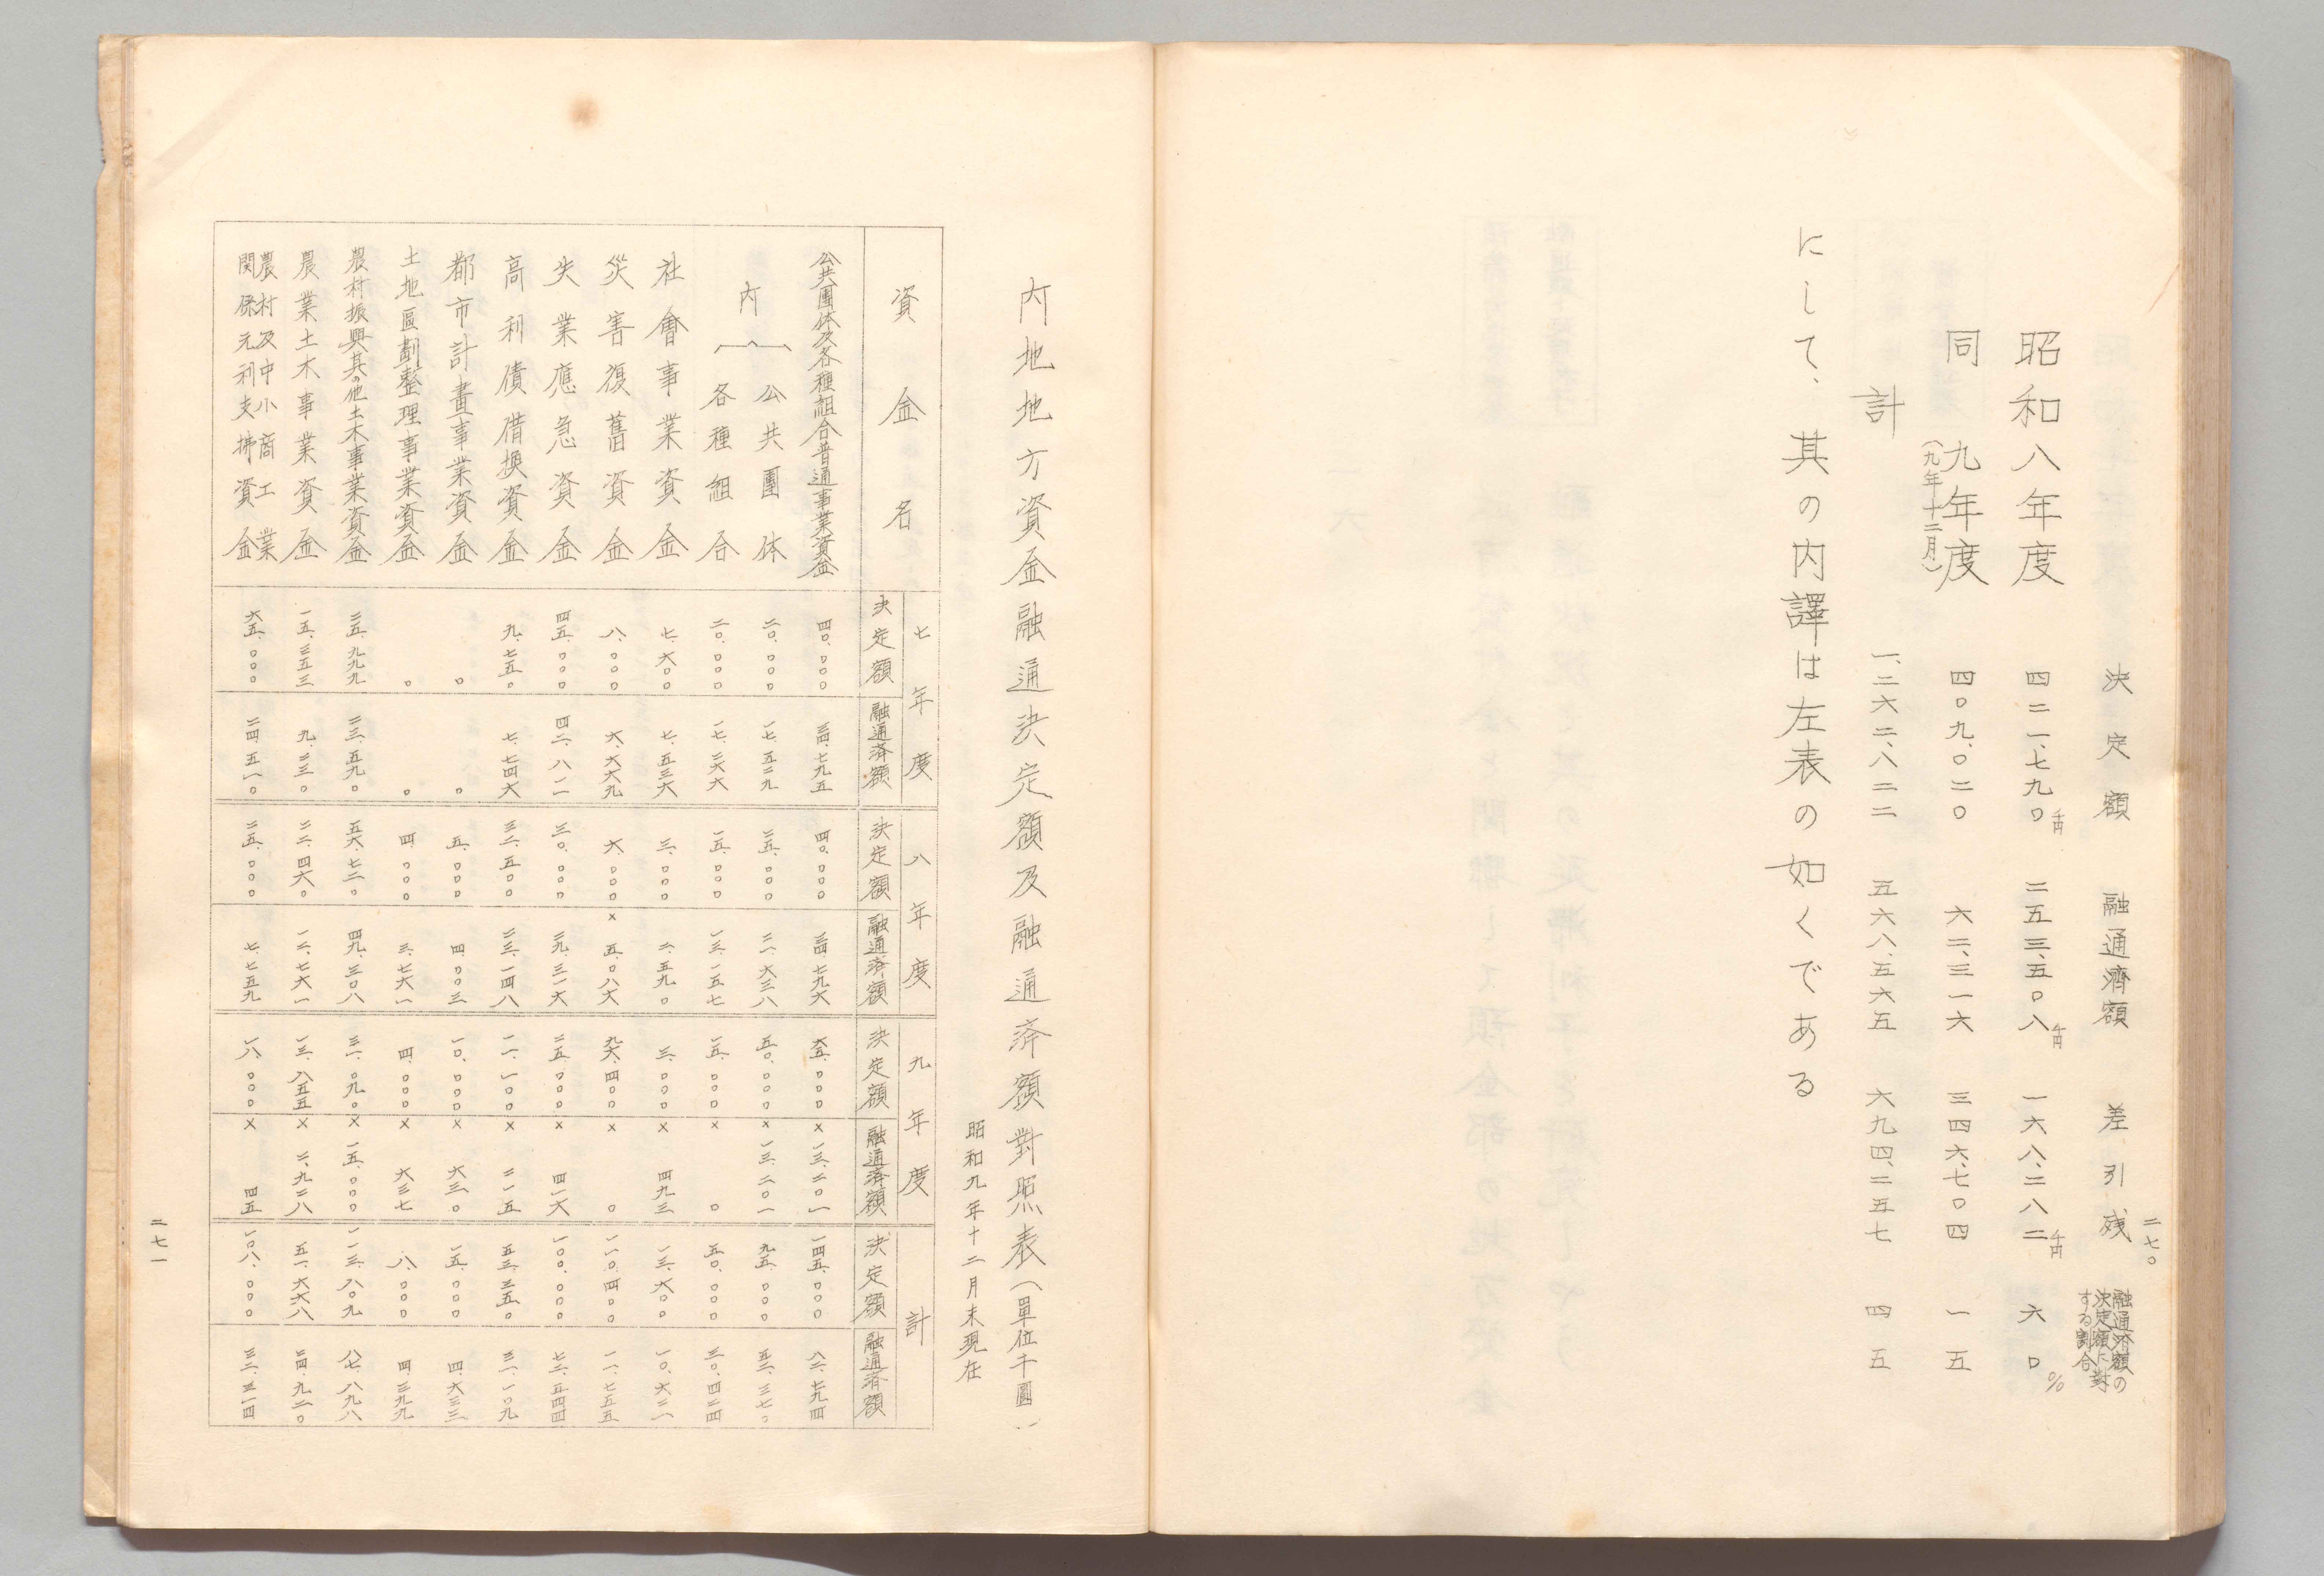 二七〇
決定額　融通濟額　差引残　融通濟額の決定額に對する割合
昭和八年度　四二一、七九〇千円　二五三、五〇八千円　一六八、二八二千円　六〇%
同　九年度（九年十二月）　四〇九、〇二〇　六二、三一六　三四六、七〇四　一五
計　一、二六二、八二二　五六八、五六五　六九四、二五七　四五
にして、其の内譯は左表の如くである
内地地方資金融通決定額及融通済額對照表（單位千圓）
昭和九年十二月末現在
資金名　七年度　八年度　九年度　計
決定額　融通済額　決定額　融通済額　決定額　融通済額　決定額　融通済額
公共團体及各種組合普通事業資金　四〇、〇〇〇　三四、七九五　四〇、〇〇〇　三四、七九六　六五、〇〇〇　×一三、二〇一　一四五、〇〇〇　八二、七九四
内　公共團体　二〇、〇〇〇　一七、五二九　二五、〇〇〇　二一、六三八　五〇、〇〇〇　×一三、二〇一　九五、〇〇〇　五二、三七〇
各種組合　二〇、〇〇〇　一七、二六六　一五、〇〇〇　一三、一五七　一五、〇〇〇　×〇　五〇、〇〇〇　三〇、四二四
社會事業資金　七、六〇〇　七、五三六　三、〇〇〇　二、五九〇　三、〇〇〇　×四九三　一三、六〇〇　一〇、六二一
災害復舊資金　八、〇〇〇　六、六六九　六、〇〇〇　×五、〇八六　九六、四〇〇　×〇　一一〇、四〇〇　一一、七五五
失業應急資金　四五、〇〇〇　四二、八一一　三〇、〇〇〇　二九、三一六　二五、〇〇〇　×四一六　一〇〇、〇〇〇　七二、五四四
高利債借換資金　九、七五〇　七、七四六　三二、五〇〇　二三、一四八　一一、一〇〇　×二一五　五三、三五〇　三一、一〇九
都市計畫事業資金　〇　〇　五、〇〇〇　四、〇〇三　一〇、〇〇〇　×六三〇　一五、〇〇〇　四、六三三
土地區劃整理事業資金　〇　〇　四、〇〇〇　三、七六一　四、〇〇〇　×六三七　八、〇〇〇　四、三九九
農村振興其の他土木事業資金　二五、九九九　二三、五九〇　五六、七二〇　四九、三〇八　三一、〇九〇　×一五、〇〇〇　一一三、八〇九　八七、八九八
農業土木事業資金　一五、三五三　九、二三〇　二二、四六〇　一二、七六一　一三、八五五　×二、九二八　五一、六六八　二四、九二〇
農村及中小商工業関係元利支拂資金　六五、〇〇〇　二四、五一〇　二五、〇〇〇　七、七五九　一八、〇〇〇　×四五　一〇八、〇〇〇　三二、三一四
二七一